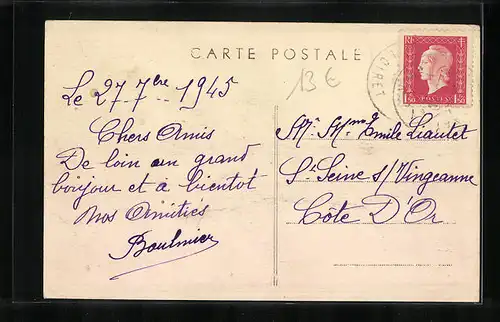 CARTE POSTALE
13 €
Le 27 7bre 1945
Chers Amis
De loin un grand
bonjour et à bientôt
Nos Amitiés
Boulmier
Mr. Mme Emile Liautet
St Seine s/ Vingeanne
Côte D'Or
LOIRET
RF